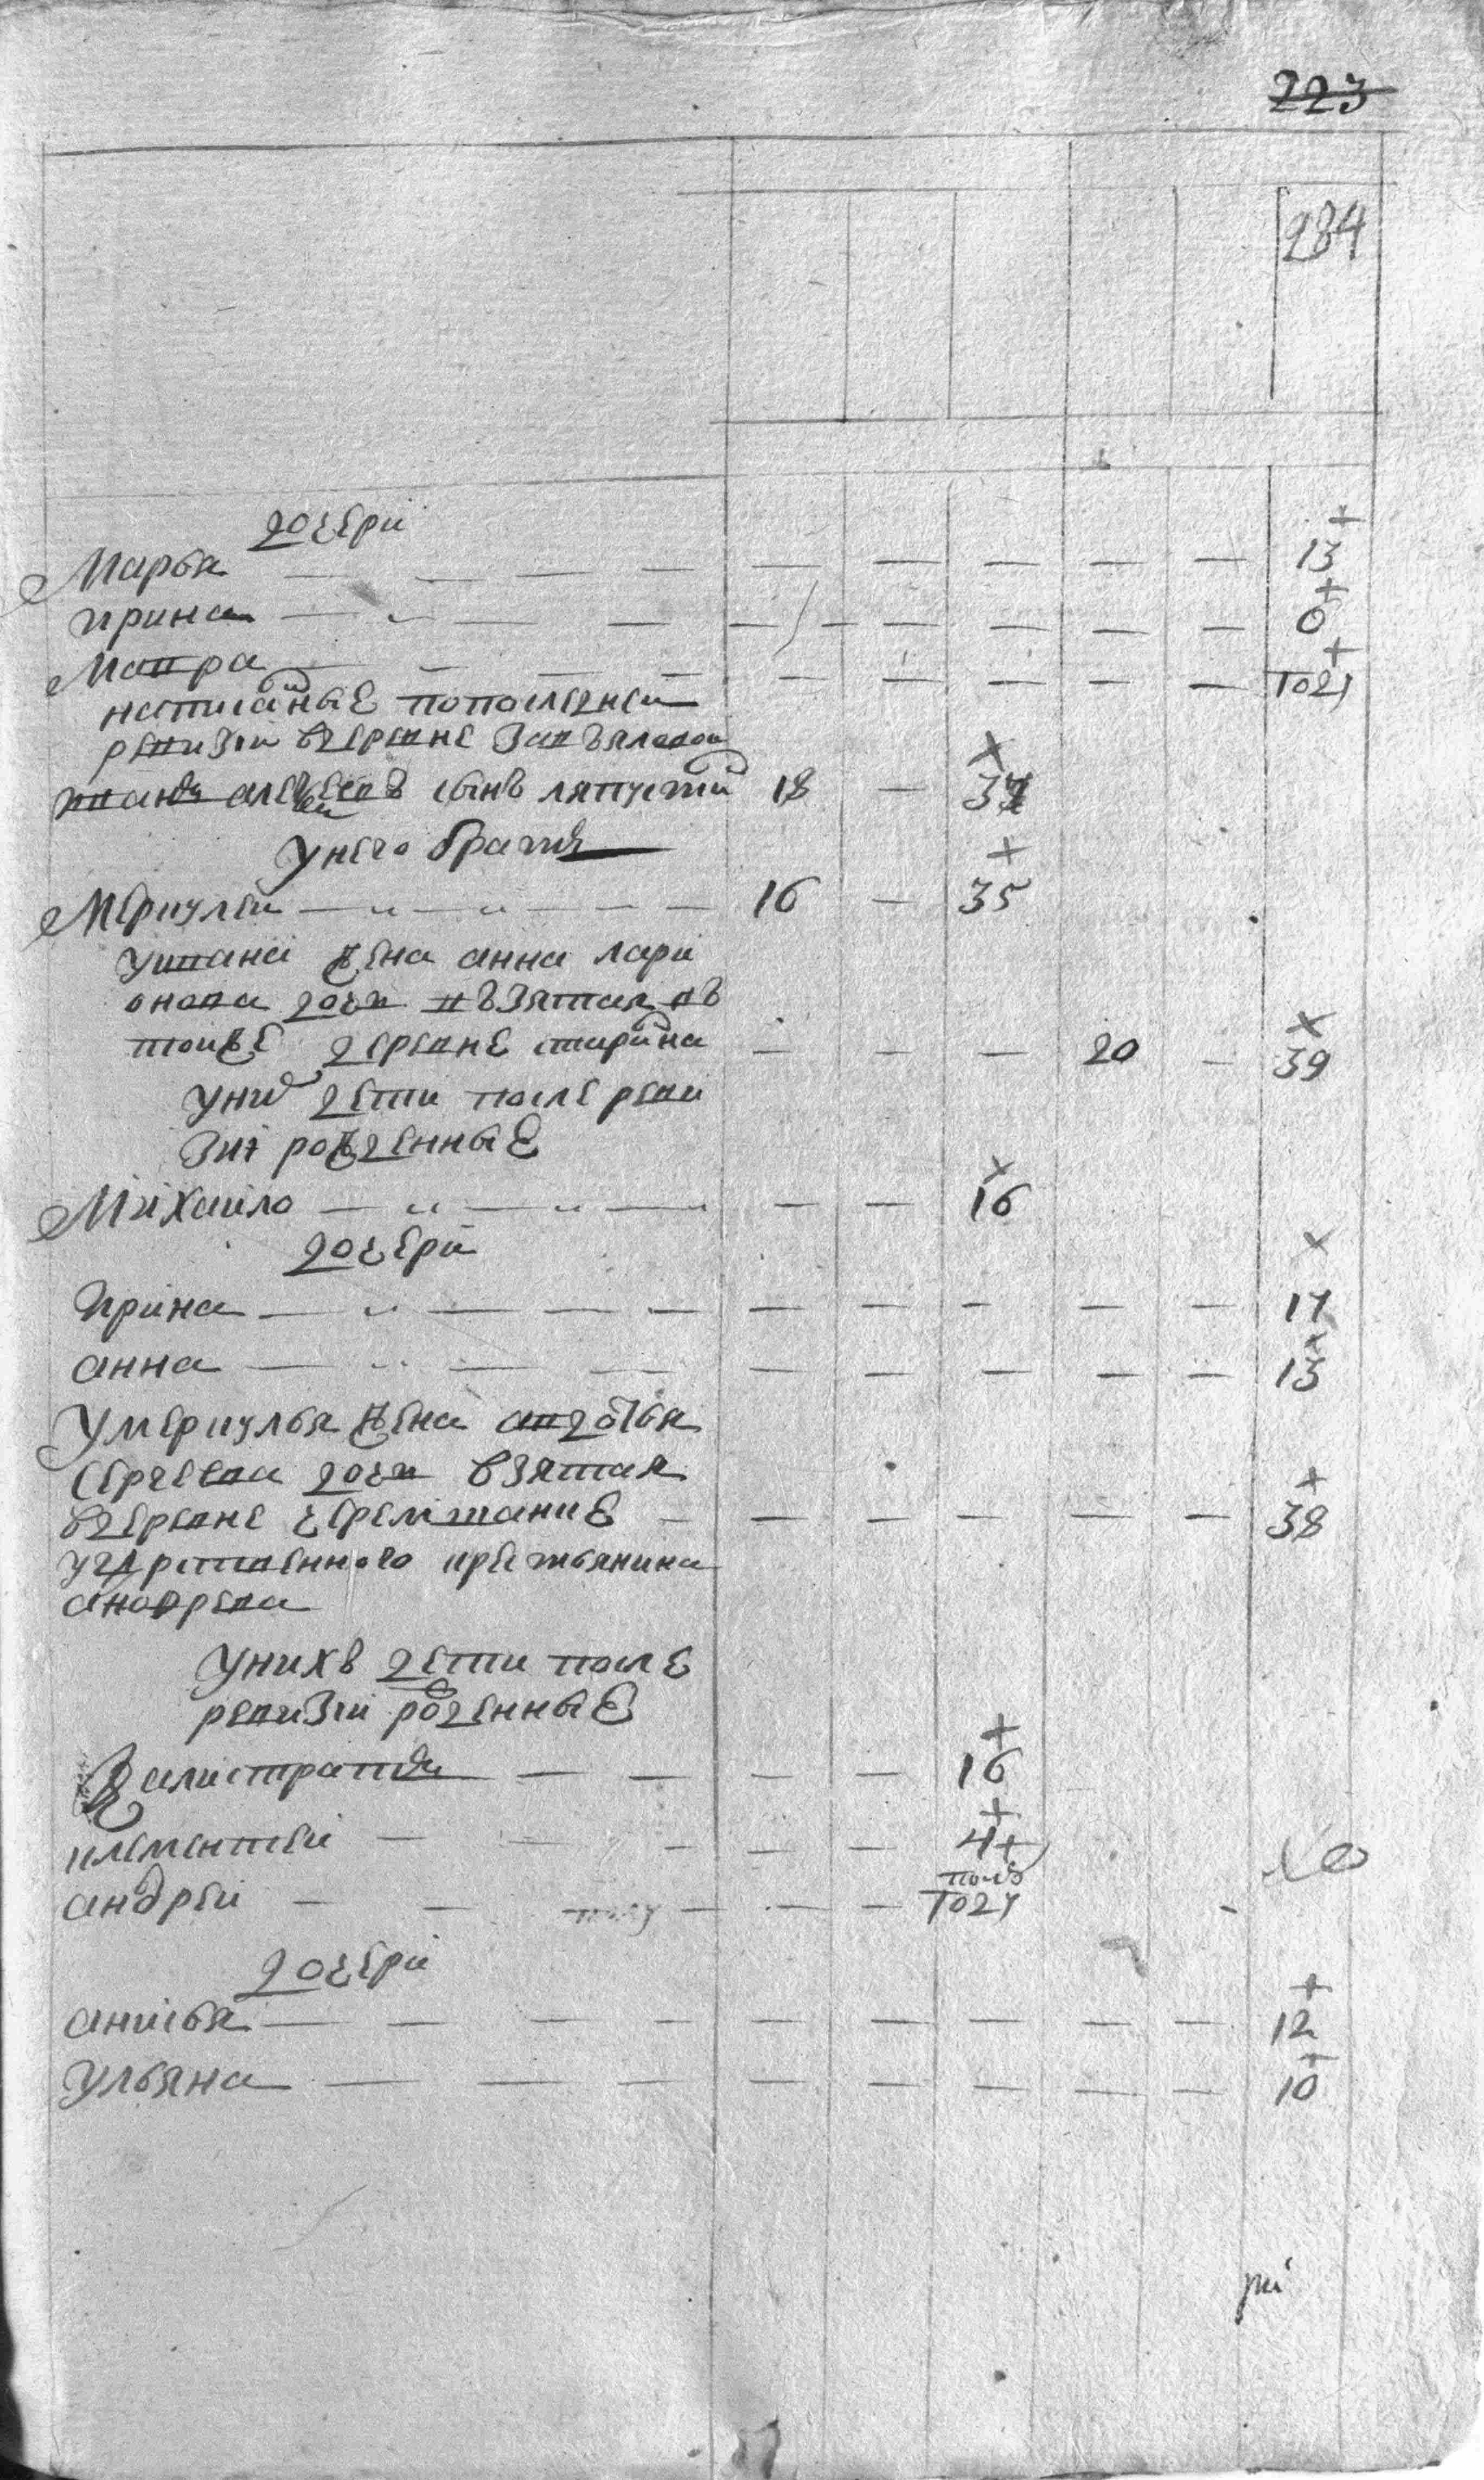 223
284
дочери
Марья — — — — — — — — — 13
ирина — — — — — — — — — 6
Мавра — — — — — — — — — 1 году
написаные попоследнеи
ревизии вдеревне
иванъ алексеевъ сынъ ляпустин 18 — 37
унего братья
Меркулеи — — — — — 16 — 35
уивана жена анна лари
онова дочь въвзятая въ
тоиже деревне старинна — — — 20 — 39
уних дети после реви
зии рожденные
Михаило — — — — — 16
дочери
Ирина — — — — — — — — — 17
анна — — — — — — — — — 13
Умеркулья жена авдотья
сергеева дочь взятая
вдеревне черемшанке — — — — — — 38
угдрственного крестьянина
андрева
унихъ дети после
ревизии рожденные
Калистратъ — — — — 16
клементеи — — — — — 4
полъ
андреи — — — — — 1 году
дочери
анисья — — — — — — — — — 12
ульяна — — — — — — — — — 10